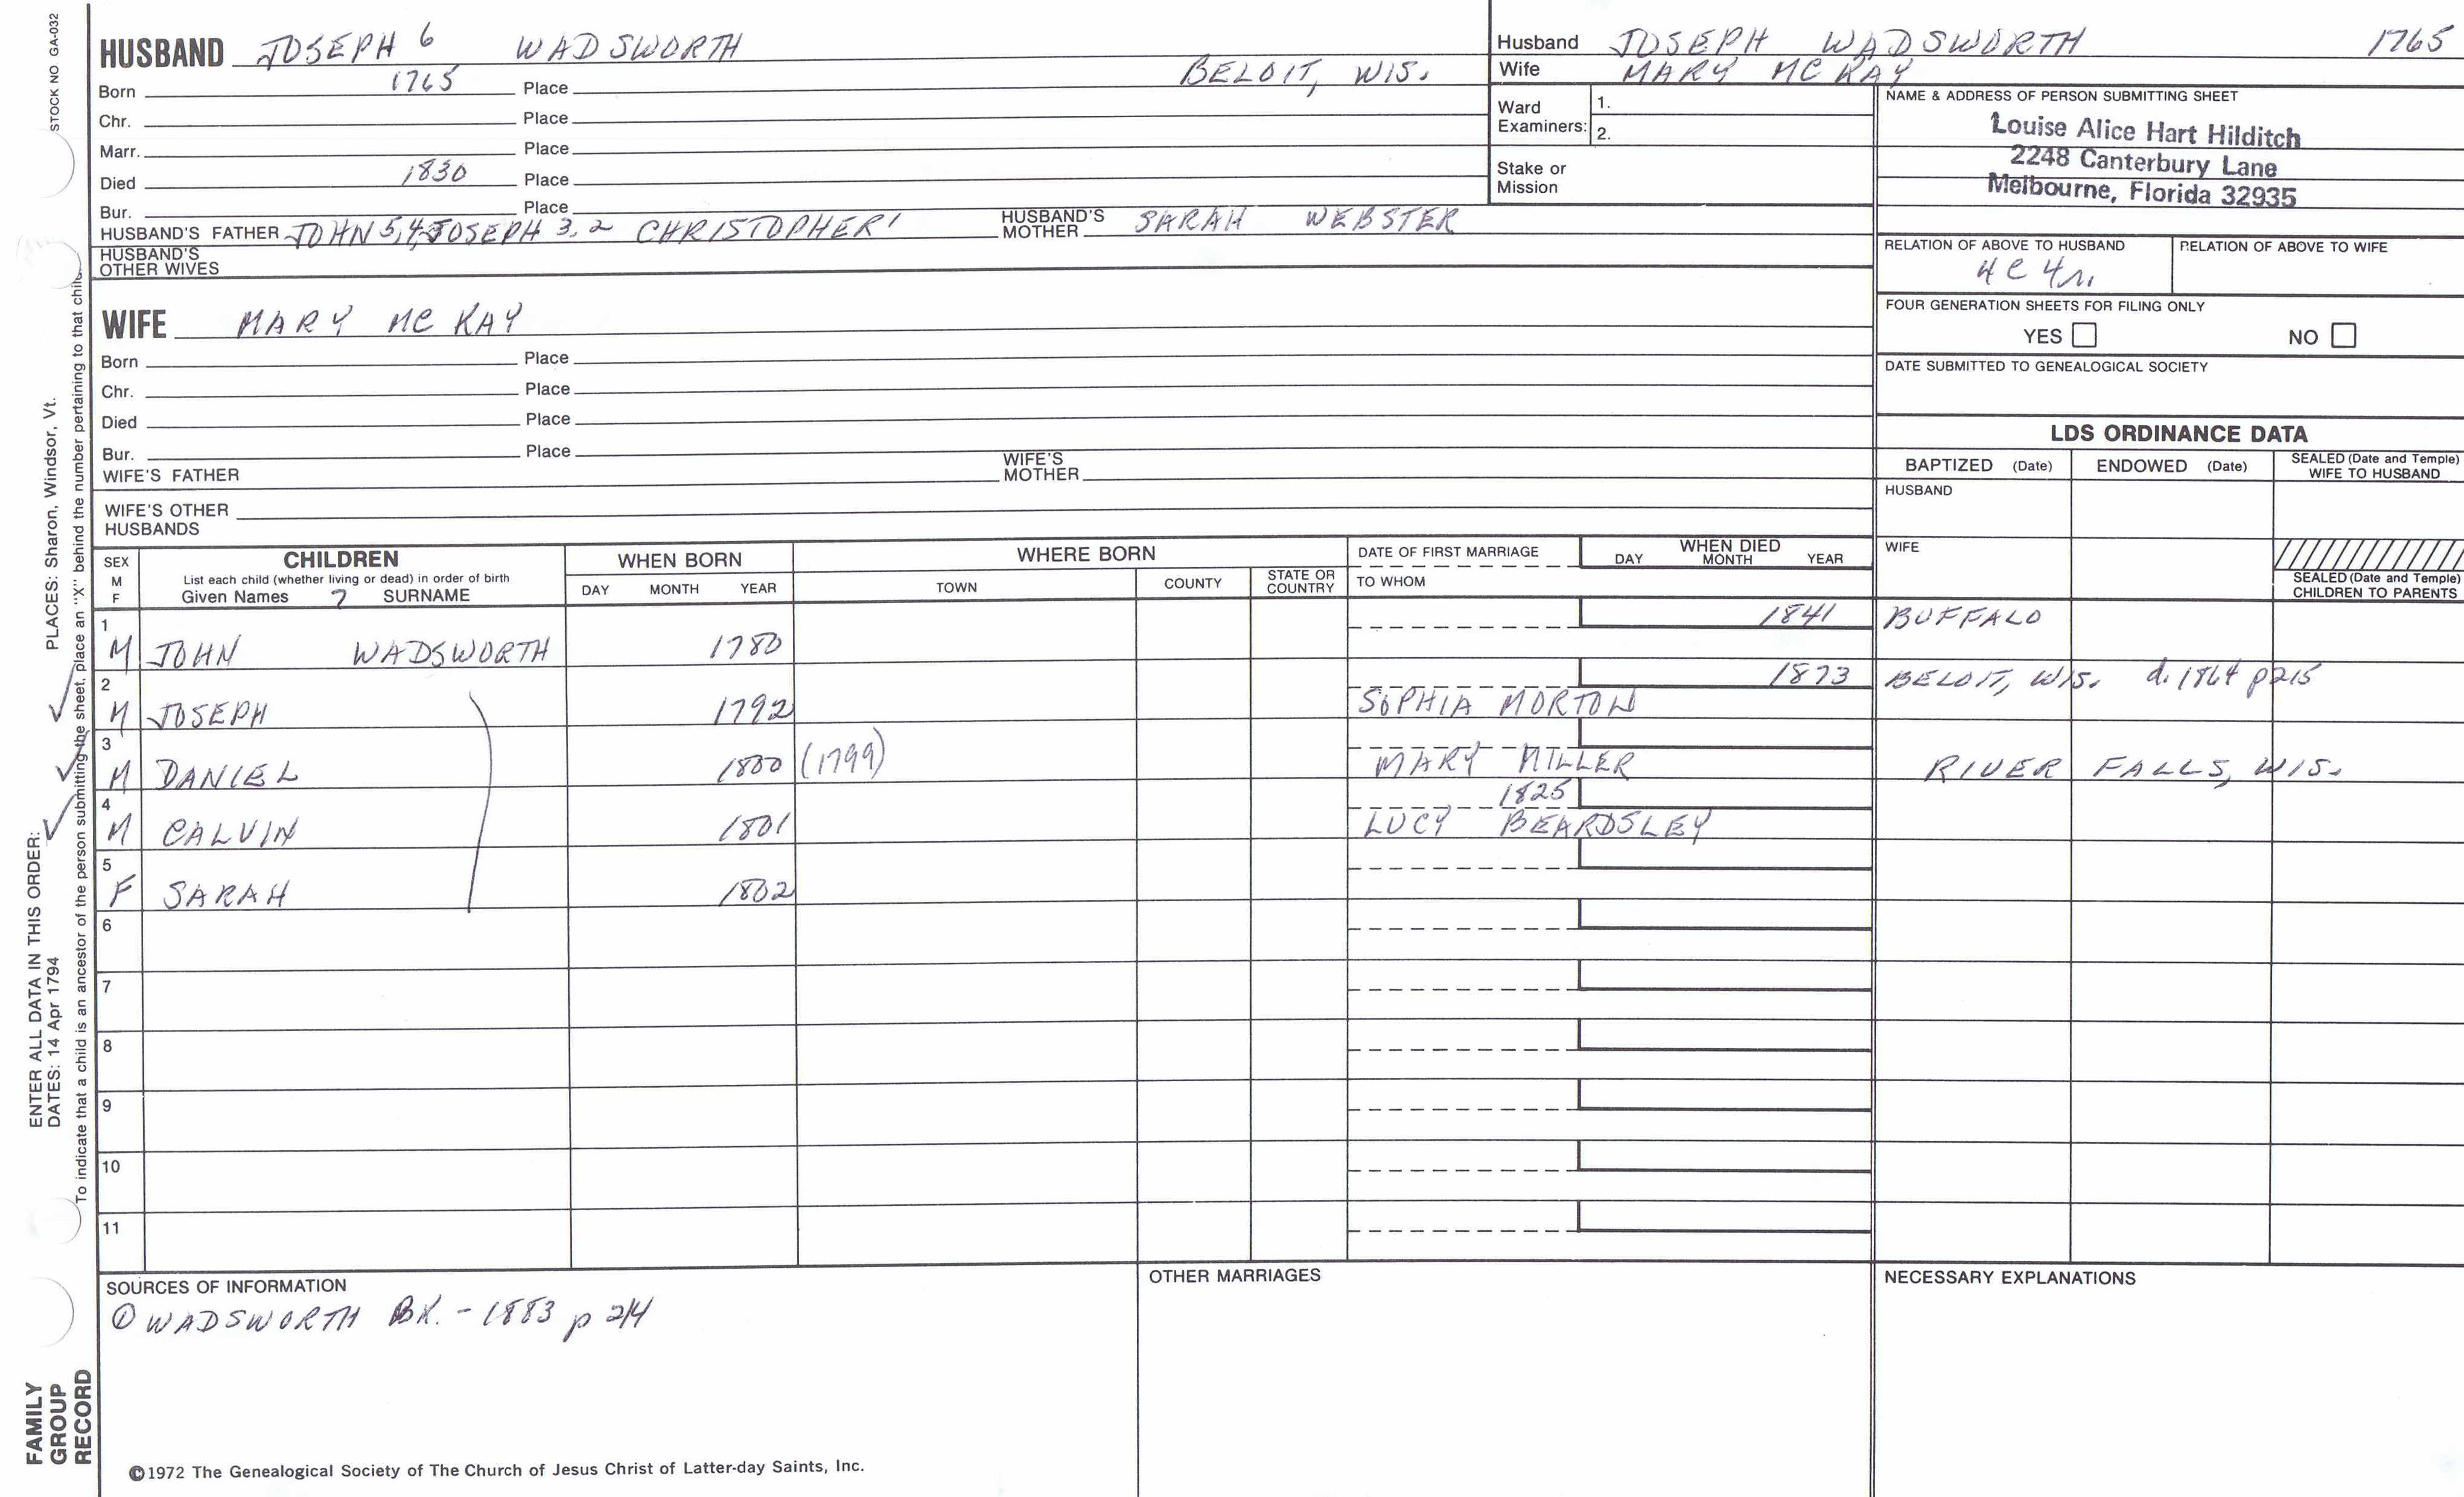 STOCK NO GA-032
HUSBAND JOSEPH 6 WADSWORTH
BELOIT, WIS.
Born 1765 Place
Chr. Place
Marr. Place
Died 1830 Place
Bur. Place
HUSBAND'S FATHER JOHN 5,4, JOSEPH 3,2 CHRISTOPHER 1 HUSBAND'S MOTHER SARAH WEBSTER
HUSBAND'S OTHER WIVES
WIFE MARY MC KAY
Born Place
Chr. Place
Died Place
Bur. Place
WIFE'S FATHER WIFE'S MOTHER
WIFE'S OTHER HUSBANDS
Husband JOSEPH WADSWORTH 1765
Wife MARY MC KAY
Ward Examiners: 1.
2.
Stake or Mission
NAME & ADDRESS OF PERSON SUBMITTING SHEET
Louise Alice Hart Hilditch
2248 Canterbury Lane
Melbourne, Florida 32935
RELATION OF ABOVE TO HUSBAND RELATION OF ABOVE TO WIFE
4 C 4 r.
FOUR GENERATION SHEETS FOR FILING ONLY
YES NO
DATE SUBMITTED TO GENEALOGICAL SOCIETY
LDS ORDINANCE DATA
BAPTIZED (Date) ENDOWED (Date) SEALED (Date and Temple) WIFE TO HUSBAND
HUSBAND
WIFE
SEALED (Date and Temple) CHILDREN TO PARENTS
SEX M F CHILDREN WHEN BORN WHERE BORN DATE OF FIRST MARRIAGE WHEN DIED
List each child (whether living or dead) in order of birth
Given Names 7 SURNAME DAY MONTH YEAR TOWN COUNTY STATE OR COUNTRY TO WHOM DAY MONTH YEAR
1 M JOHN WADSWORTH 1780 1841 BUFFALO
2 M JOSEPH 1792 SOPHIA MORTON 1873 BELOIT, WIS. d. 1864 p215
3 M DANIEL 1800 (1799) MARY MILLER RIVER FALLS, WIS.
4 M CALVIN 1801 1825 LUCY BEARDSLEY
5 F SARAH 1802
6
7
8
9
10
11
SOURCES OF INFORMATION
① WADSWORTH BK. - 1883 p 214
OTHER MARRIAGES
NECESSARY EXPLANATIONS
©1972 The Genealogical Society of The Church of Jesus Christ of Latter-day Saints, Inc.
ENTER ALL DATA IN THIS ORDER: PLACES: Sharon, Windsor, Vt.
DATES: 14 Apr 1794
To indicate that a child is an ancestor of the person submitting the sheet, place an "X" behind the number pertaining to that child.
FAMILY
GROUP
RECORD